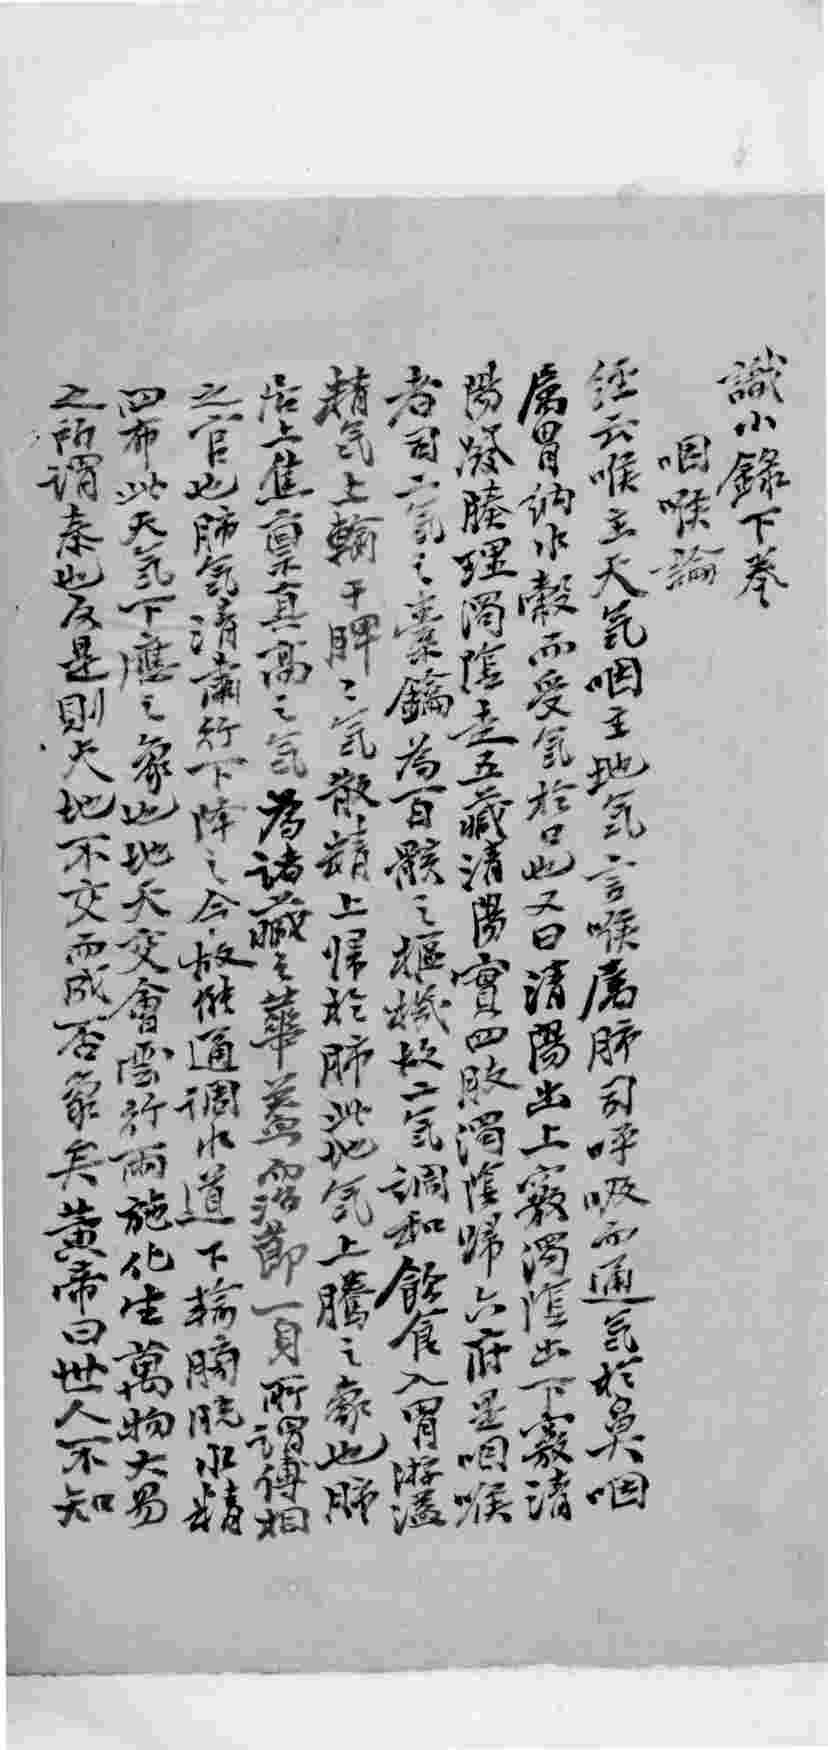 識小錄下卷
咽喉論
經云喉主天氣咽主地氣言喉屬肺司呼吸而通氣於鼻咽
屬胃納水穀而受氣於口也又曰清陽出上竅濁陰出下竅清
陽發腠理濁陰走五藏清陽實四肢濁陰歸六府是咽喉
者司二氣之橐鑰為百骸之樞機故二氣調和飲食入胃游溢
精气上輸于脾〻氣散精上歸於肺此地氣上騰之象也肺
居上焦稟真高之氣為諸藏之華蓋而治節一身所謂傅相
之官也肺氣清肅行下降之令故能通調水道下輸膀胱水精
四布此天氣下應之象也地天交會雲行雨施化生萬物大易
之所謂泰也反是則天地不交而成否象矣黃帝曰世人不知